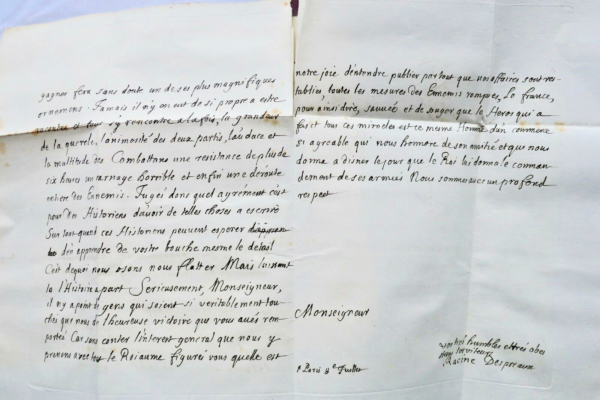 gagner fera sans doute un de ses plus magnifiques
ornemens. Jamais il n'y en eut de si propre a estre
racontée et tout s'y rencontre a la fois, la grandeur
de la querelle, l'animosité des deux partis, l'audace et
la multitude des Combattans une resistance de plus de
six heures un carnage horrible et enfin une déroute
entiere des Ennemis. Jugés donc quel agrément c'est
pour des Historiens d'avoir de telles choses a escrire
Sur tout quand ces Historiens peuvent esperer
de apprendre de vostre bouche mesme le detail
C'est dequoi nous osons nous flatter Mais laissant
la l'Histoire a part Serieusement, Monseigneur,
il n'y a point de gens qui soient si veritablement tou-
chés que nous de l'heureuse victoire que vous avés rem-
portée Car sans conter l'interest general que nous y
prenons avec tout le Roiaume figurés vous quelle est
notre joie d'entendre publier par tout que nos affaires sont res-
tablies, toutes les mesures des Ennemis rompues, La france,
pour ainsi dire, sauvée et de songer que le Heros qui a
fait tout ces miracles est ce mesme Homme d'un commerce
si agreable qui nous honnore de son amitié et qui nous
donna a disner le jour que le Roi lui donna le comman-
dement de ses armées Nous sommes avec un profond
respect
Monseigneur
A Paris 8e Juillet
vos tres humbles et tres obeis
sans serviteurs
Racine Despreaux